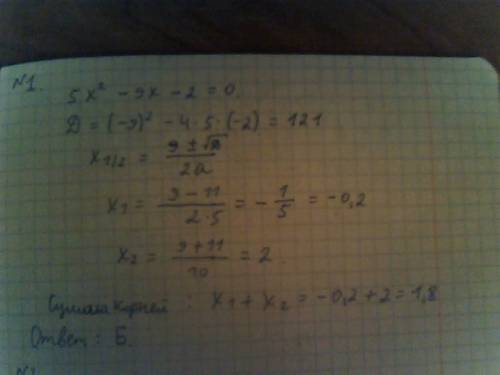 №1.
5x² - 9x - 2 = 0
D = (-9)² - 4·5·(-2) = 121
x₁/₂ = (9 ± √D)/2a
x₁ = (9 - 11)/(2·5) = -1/5 = -0,2
x₂ = (9 + 11)/10 = 2
Сумма корней : x₁ + x₂ = -0,2 + 2 = 1,8
Ответ : Б.